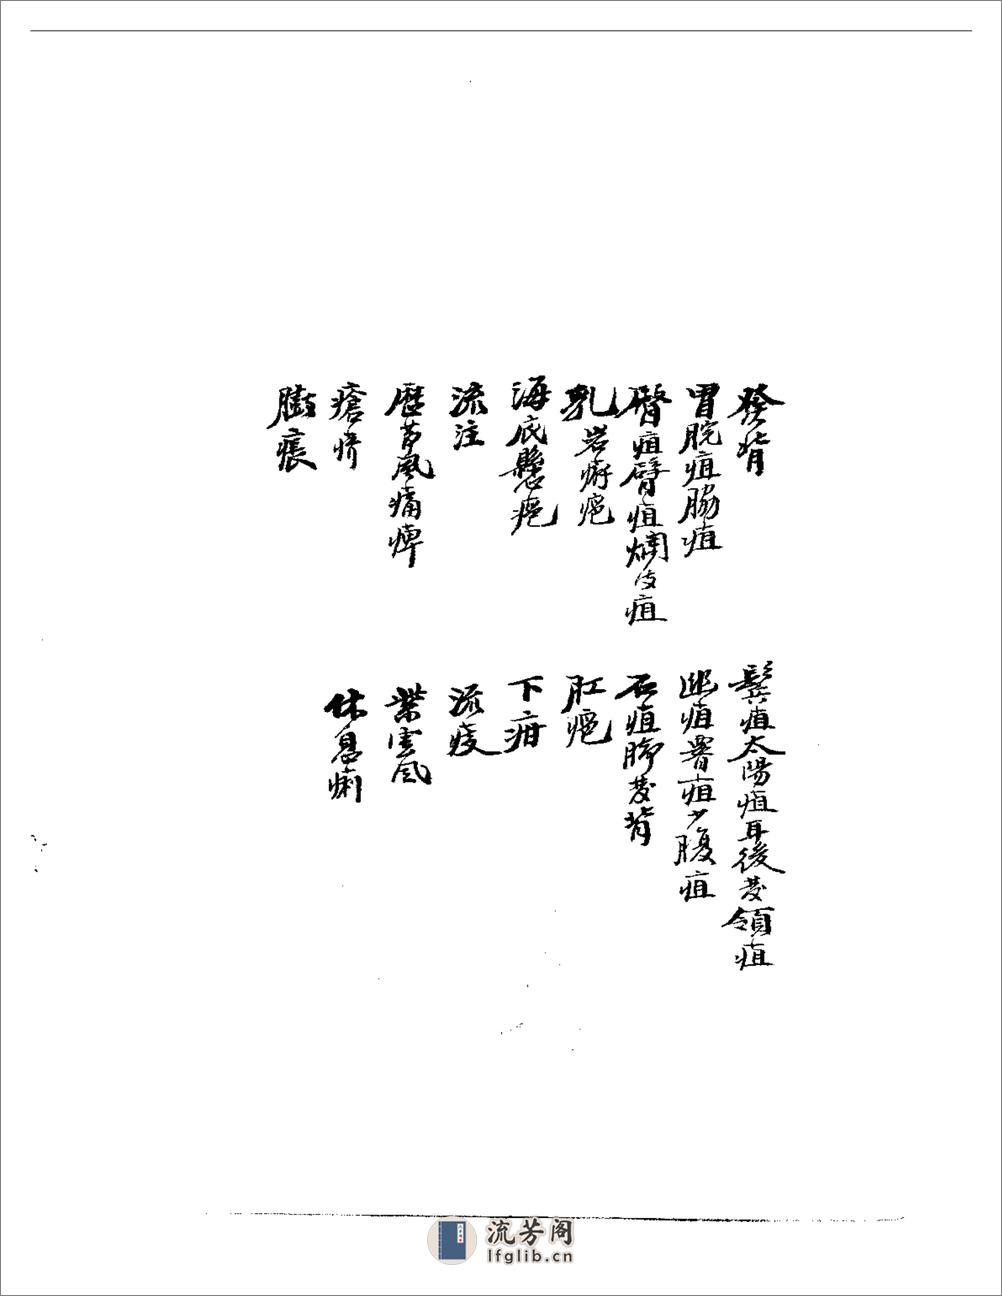 發背
鬓疽太陽疽耳後發領疽
胃脘疽脇疽
疽疽少腹疽
臀疽臂疽爛皮疽
石疽脚發背
乳岩疿疤
肛疤
海底懸疤
下疳
流注
流痰
歷節風痛痺
紫雲風
瘡疥
休息痢
膨脹
流芳阁
lfglib.cn